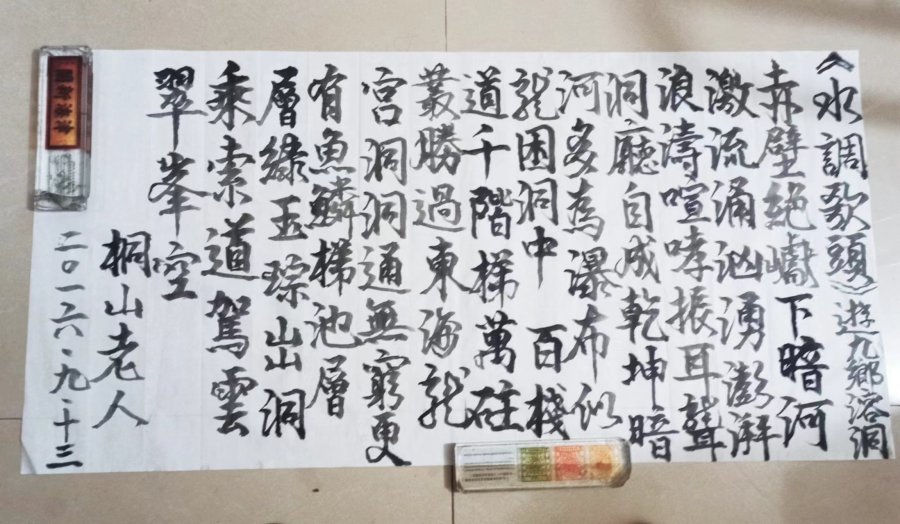 《水調歌頭》遊九鄉溶洞
赤壁絶巘下暗河
激流涌汹湧澎湃
浪濤喧哮振耳聾
洞廳自成乾坤暗
河多為瀑布似
龍困洞中 百棧
道千階梯萬硅
叢勝過東海龍
宫洞洞通無窮更
有魚鱗梯池層
層緑玉琮出洞
乘索道駕雲
翠峯空
桐山老人
二〇一六.九.十三